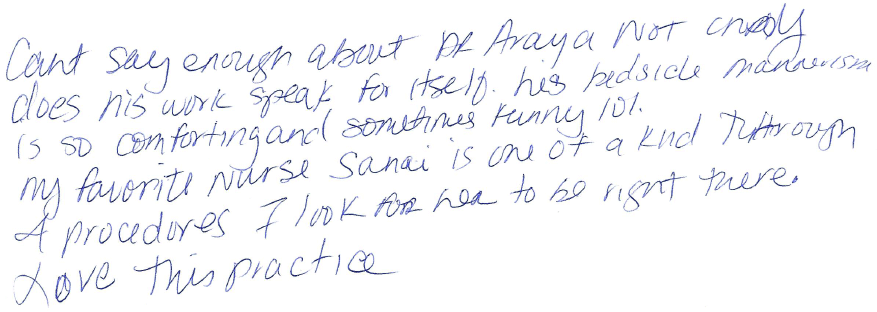 Cant say enough about DR Araya Not only
does his work speak for itself. his bedside mannerism
is so comforting and sometimes funny lol.
my favorite Nurse Sanai is one of a knd Through
4 procedures I look for her to be right there.
Love This practice